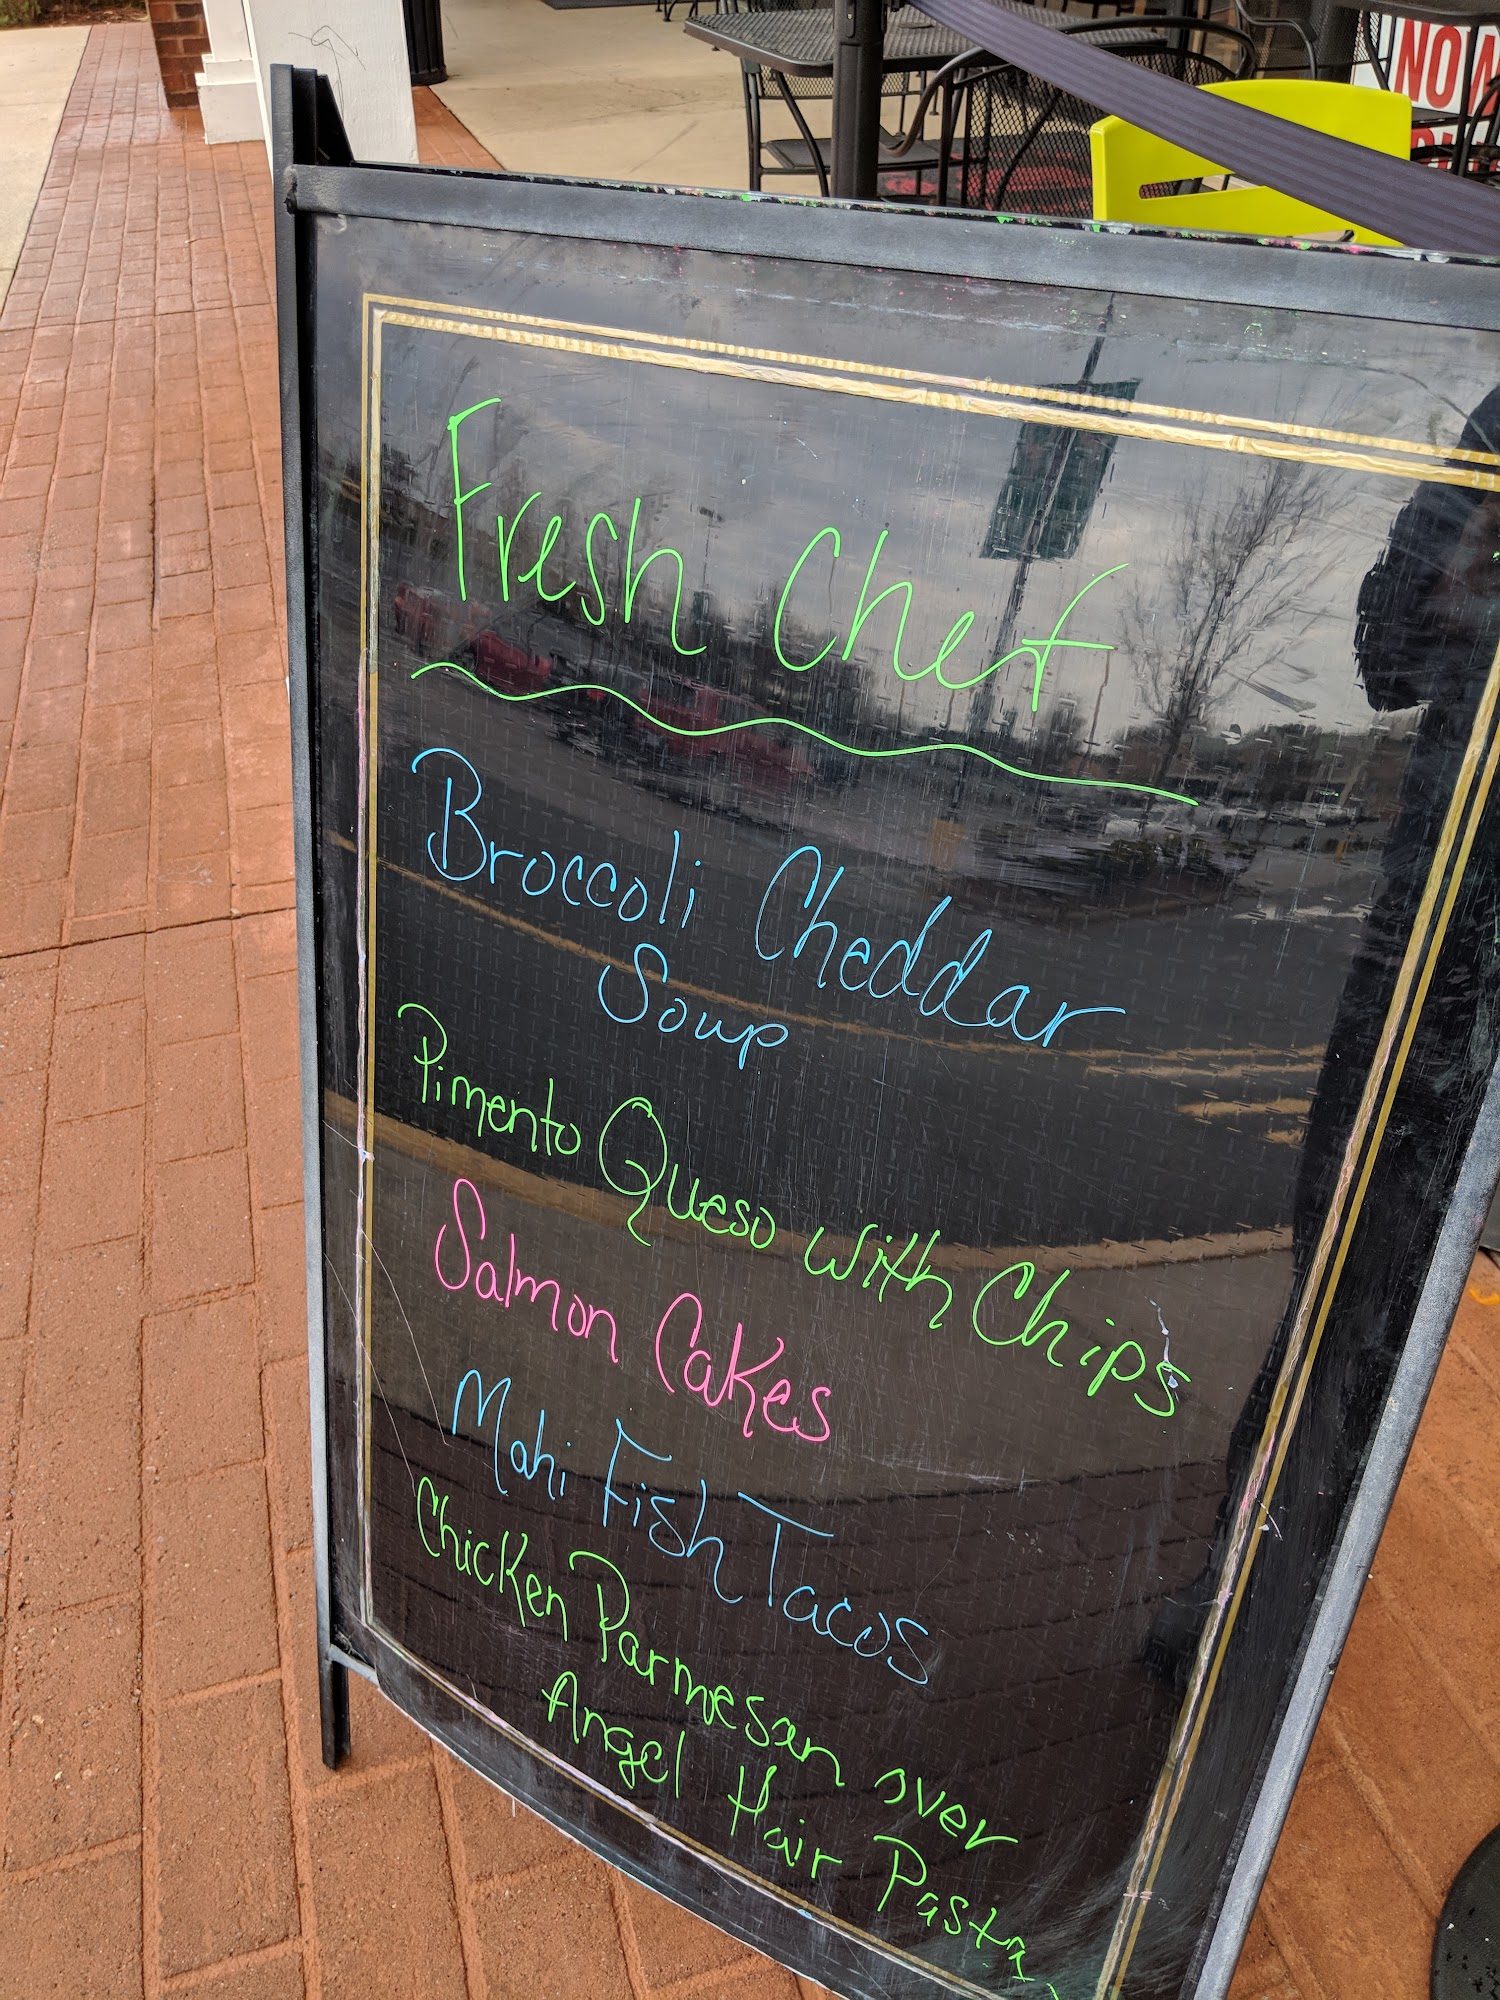 NOW
Fresh Chef
Broccoli Cheddar
Soup
Pimento Queso with Chips
Salmon Cakes
Mahi Fish Tacos
Chicken Parmesan over
Angel Hair Pasta